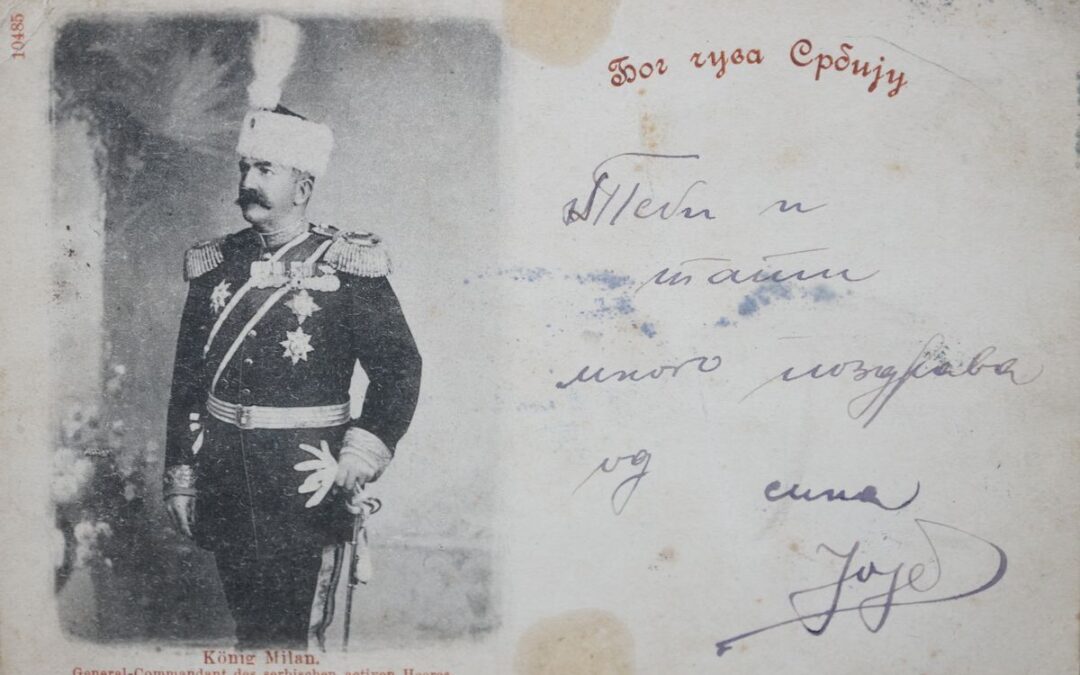 10485
Бог чува Србију
Теби и
тати
много поздрава
од сина
König Milan.
General-Commandant des serbischen activen Heeres.